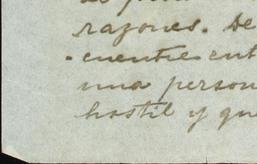 razones. De
cuentre ent
una person
hostil y que